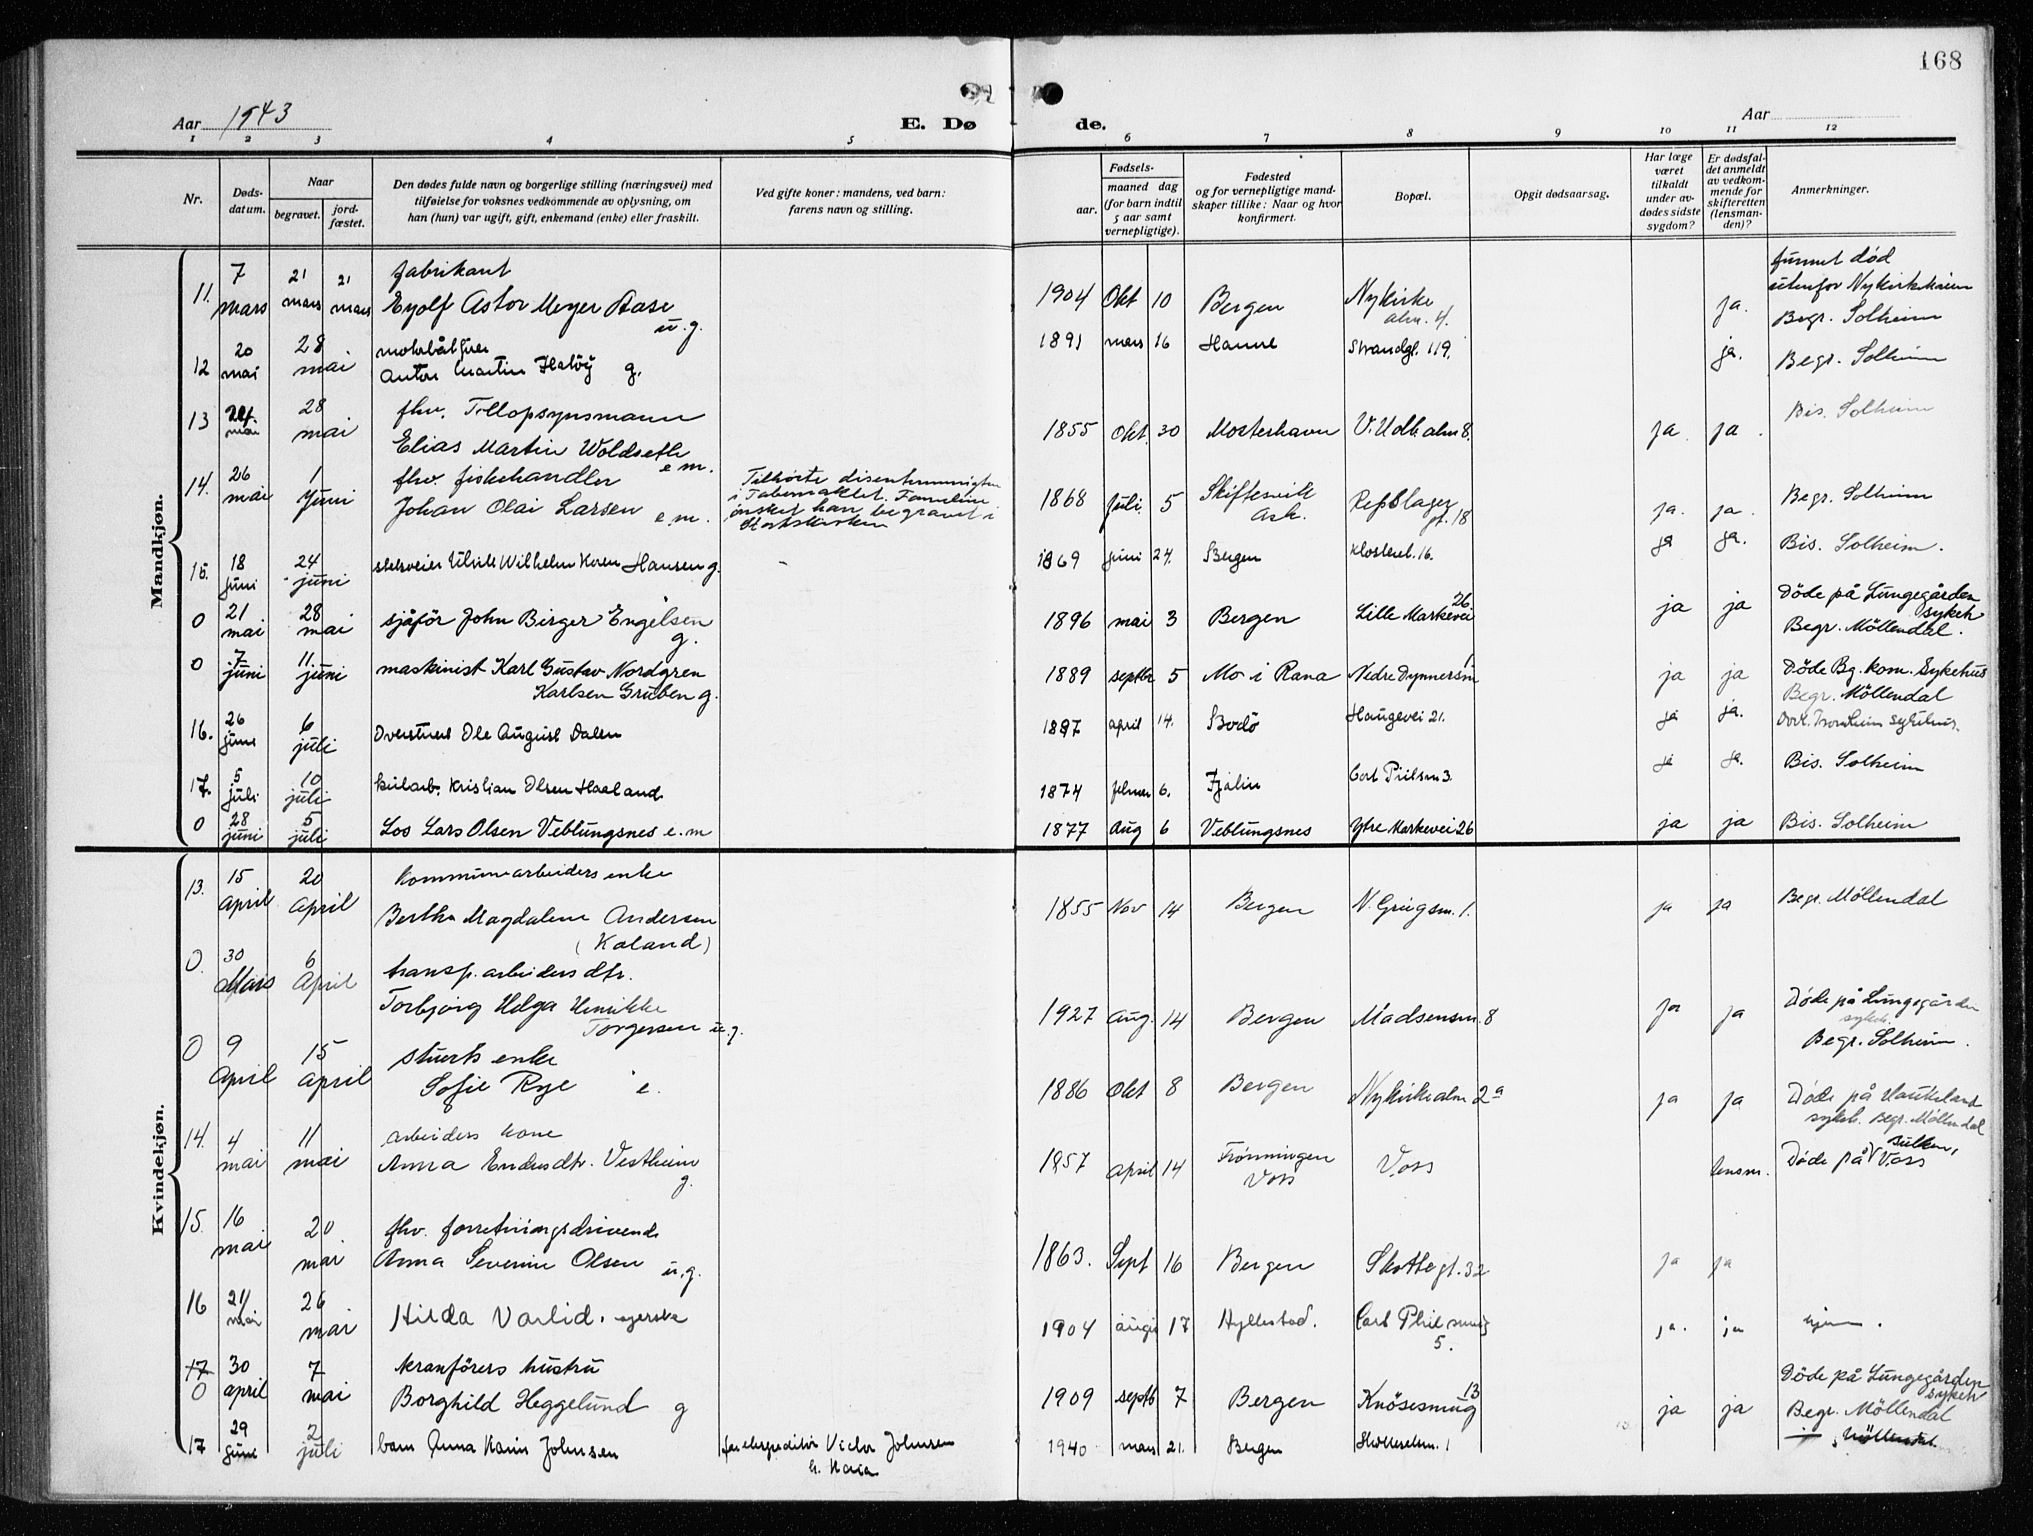 168
Aar 1943
E. Dø
de.
Aar
1 2 3 4 5 6 7 8 9 10 11 12
Nr.
Døds-
datum.
Naar
begravet.
jord-
fæstet.
Den dødes fulde navn og borgerlige stilling (næringsvei) med
tilføielse for voksnes vedkommende av oplysning, om
han (hun) var ugift, gift, enkemand (enke) eller fraskilt.
Ved gifte koner: mandens, ved barn:
farens navn og stilling.
Fødsels-
aar.
maaned dag
(for barn indtil
5 aar samt
vernepligtige).
Fødested
og for vernepligtige mand-
skaper tillike: Naar og hvor
konfirmert.
Bopæl.
Opgit dødsaarsag.
Har læge
været
tilkaldt
under av-
dødes sidste
sygdom?
Er dødsfal-
det anmeldt
av vedkom-
mende for
skifteretten
(lensman-
den)?
Anmerkninger.
Mandkjøn.
11. 7 mars 21 mars 21 mars fabrikant
Eyolf Astor Meyer Aase u.g.
1904 Okt 10 Bergen Nykirke alm. 4. ja.
funnet død
utenfor Nykirkekaien
Begr. Solheim
12 20 mai 28 mai
Anton Martin g.
1891 mars 16 Strandgt. 119. ja. Begr. Solheim
13 24 mai 28 mai fhv. Tollopsynsmann
Elias Martin Woldseth e.m.
1855 Okt. 30 Mosterhavn V. Udh. alm 8. ja ja. Bis. Solheim
14. 26 mai 1 Juni fhv. fiskehandler
Johan Olai Larsen e.m.
Tilhørte dissentermenigheten
i Tabernaklet. Familien
ønsket han begravet i
Statskirken
1868 Juli 5 Skiftesvik
Ask. Repslager gt. 18 ja. ja. Begr. Solheim
15. 18 juni 24 juni Wilhelm Koren Hansen g. -
1869 juni 24. Bergen Klosteret. 16. ja ja. Bis. Solheim.
0 21 mai 28 mai sjåfør John Birger Engelsen g.
1896 mai 3 Bergen Lille Markevei 26 ja ja Døde på Lungegården
sykeh
Begr. Møllendal.
0 7 juni 11 juni maskinist Karl Gustav Nordgren
Karlsen Gruben g.
1889 septbr 5 Mo i Rana Nedre Dynnersm 1 ja ja Døde Bg. kom. Sykehus
Begr. Møllendal
16. 26 juni 6 juli Overstuert Ole August Dalen
1897 april 14. Bodø Haugevei 21. ja ja. Trondheim sykehus.
17. 5 juli 10 juli Kristian Olsen Haaland
1874 februar 6. Fjaler 3. ja ja. Bis. Solheim
0 28 juni 5 juli Los Lars Olsen Veblungsnes e.m
1877 Aug 6 Veblungsnes Ytre Markevei 26 ja ja Bis. Solheim
Kvindekjøn.
13. 15 April 20 April Kommunearbeiders enke
Bertha Magdalene Andersen
(Kaland)
1855 Nov 14 Bergen N. Griegsm. 1. ja ja Begr. Møllendal
0. 30 Mars 6 April transp. arbeiders dtr.
Torbjørg Helga Henrikke
Torgersen u.g.
1927 Aug. 14 Bergen Madsensm. 8 ja ja Døde på Lungegården
sykeh.
Begr. Solheim.
0 9 April 15 April stuerts enke
Sofie Rye e.
1886 Okt 8 Bergen Nykirkealm 2a ja ja Døde på Haukeland
sykeh. Begr. Møllendal
14. 4 mai 11 mai arbeiders kone
Anna Endresdtr. Vestheim g.
1857 April 14 Trønningen
Voss Voss lensm. Døde på Voss
15. 16 mai 20 mai fhv. forretningsdrivende
Anna Severine Olsen u.g.
1863. Sept 16 Bergen Skottegt. 32 ja ja
16 21 mai 26 mai Hilda Varlid.
1904 17 Hyllestad. 5. ja. ja
17 0 30 april 7 mai kranførers hustru
Borghild Heggelund g
1909 septb 7 Bergen Knøsesmug 13 ja ja Døde på Lungegården
sykeh
Begr. Møllendal
17 29 juni 2 juli barn Anna Karin Johnsen
Victor Johnsen
1940 mars 21. Bergen 1 Møllendal.